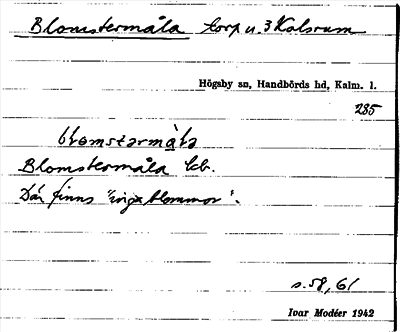 Blomstermåla torp u. 3 Kalsrum
Högsby sn, Handbörds hd, Kalm. l.
285
blomstərmå̀la
Blomstermåla kb.
Där finns "inga blommor".
s. 58, 61
Ivar Modéer 1942